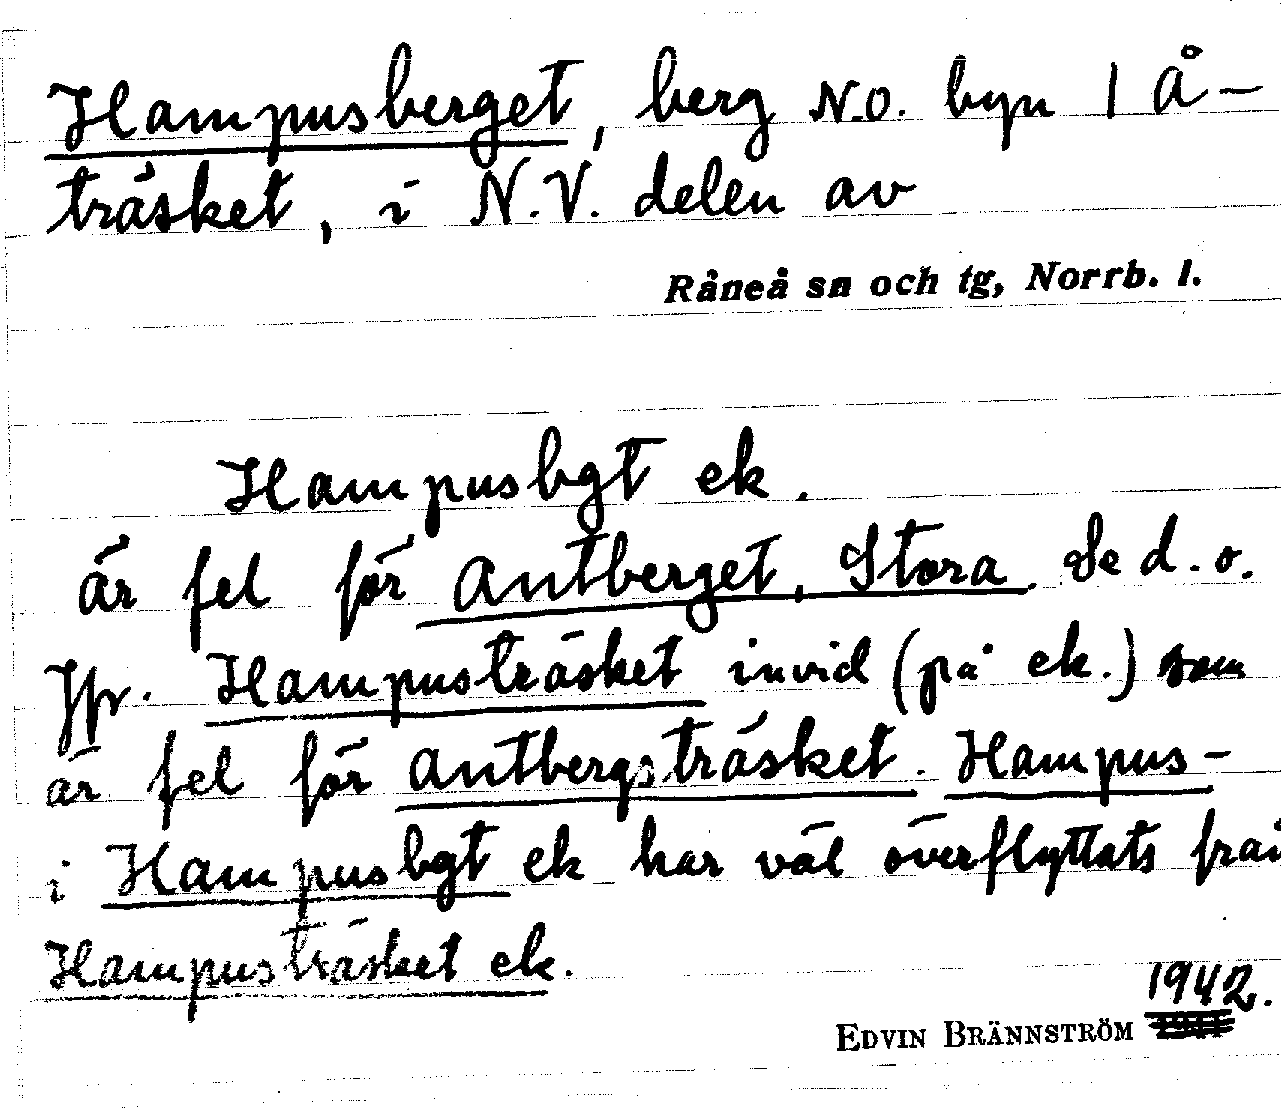 Hampusberget, berg N.O. byn 1 Å-
träsket, i N.V. delen av
Råneå sn och tg, Norrb. l.
Hampusbgt ek.
är fel för Antberget, Stora. Se d.o.
Jfr. Hampusträsket invid (på ek.) som
är fel för Antbergsträsket. Hampus-
i Hampusbgt ek har väl överflyttats från
Hampusträsket ek.
1942.
EDVIN BRÄNNSTRÖM